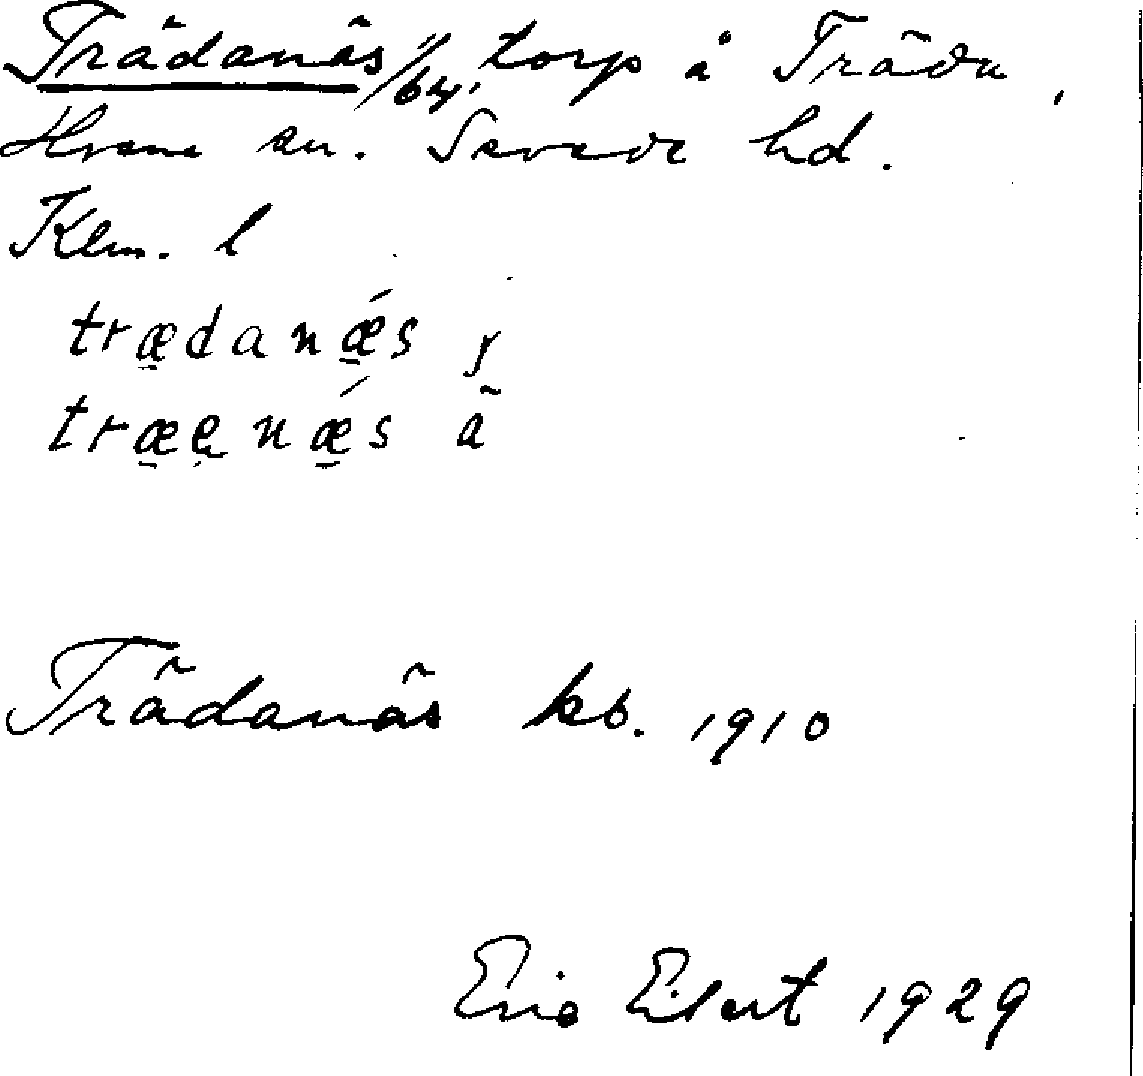 Trädanäs 11/64, torp å Träda,
Hvena sn. Sevede hd.
Klm. l
trædanǽs y
træęnǽs ã
Trädanäs kb. 1910
Eric Elert 1929